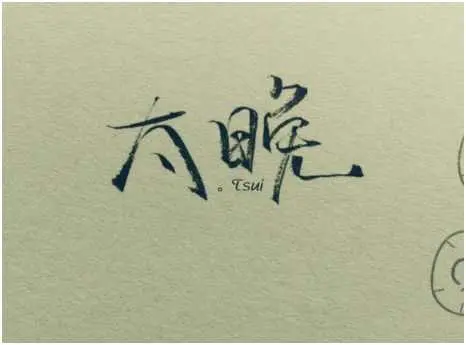 太晚
。Tsui